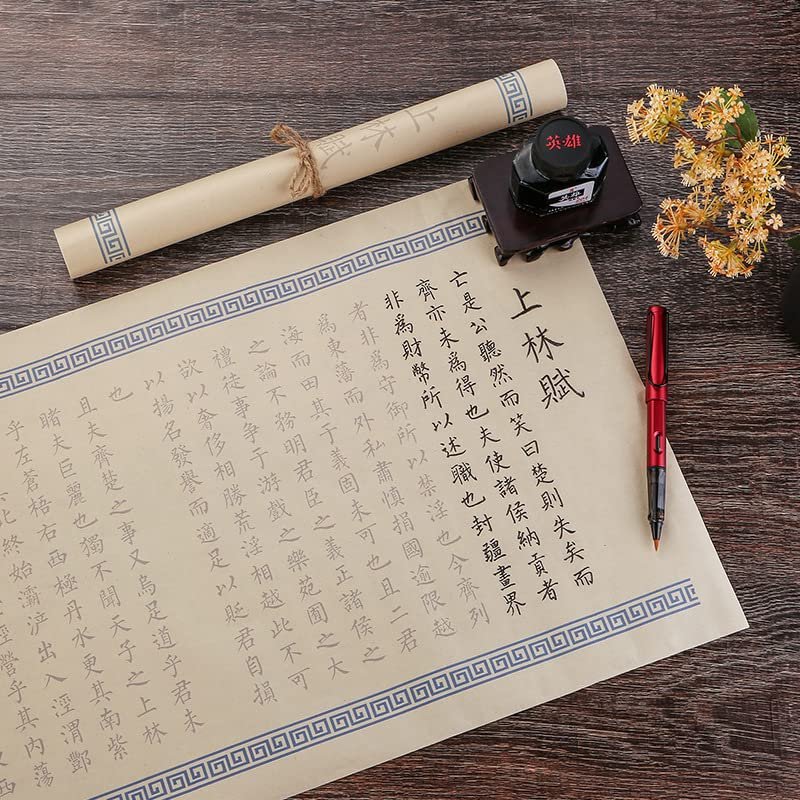 上林賦
英雄
上林賦
亡是公聽然而笑曰楚則失矣而
齊亦未為得也夫使諸侯納貢者
非為財幣所以述職也封疆畫界
者非為守御所以禁淫也今齊列
為東藩而外私肅慎捐國逾限越
海而田其于義固未可也且二君
之論不務明君臣之義正諸侯之
禮徒事爭于游戲之樂苑囿之大
欲以奢侈相勝荒淫相越此不可
以揚名發譽而適足以貶君自損
也
且夫齊楚之事又烏足道乎君未
睹夫巨麗也獨不聞天子之上林
乎左蒼梧右西極丹水更其南紫
此終始灞滻出入涇渭酆
營乎其內蕩
西